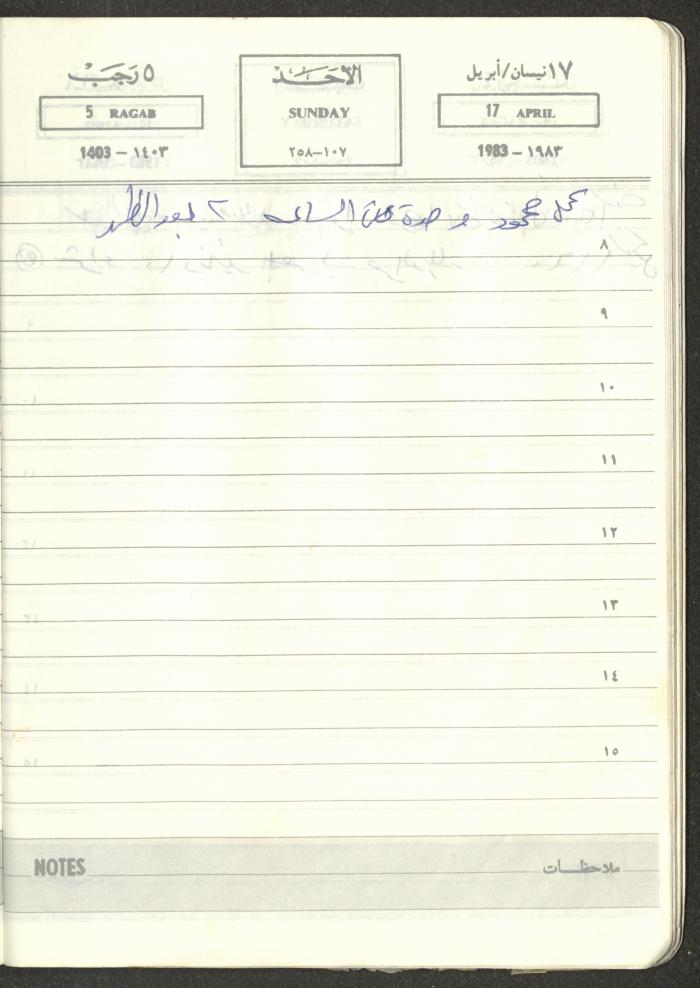 ١٧ نيسان/أبريل
17 APRIL
١٩٨٣ – 1983
الأحَـــد
SUNDAY
١٠٧–٢٥٨
٥ رَجَبْ
5 RAGAB
١٤٠٣ – 1403
محمود وحدة من الساعه ٢ بعد الظهر
٨
٩
١٠
١١
١٢
١٣
١٤
١٥
NOTES ملاحظات